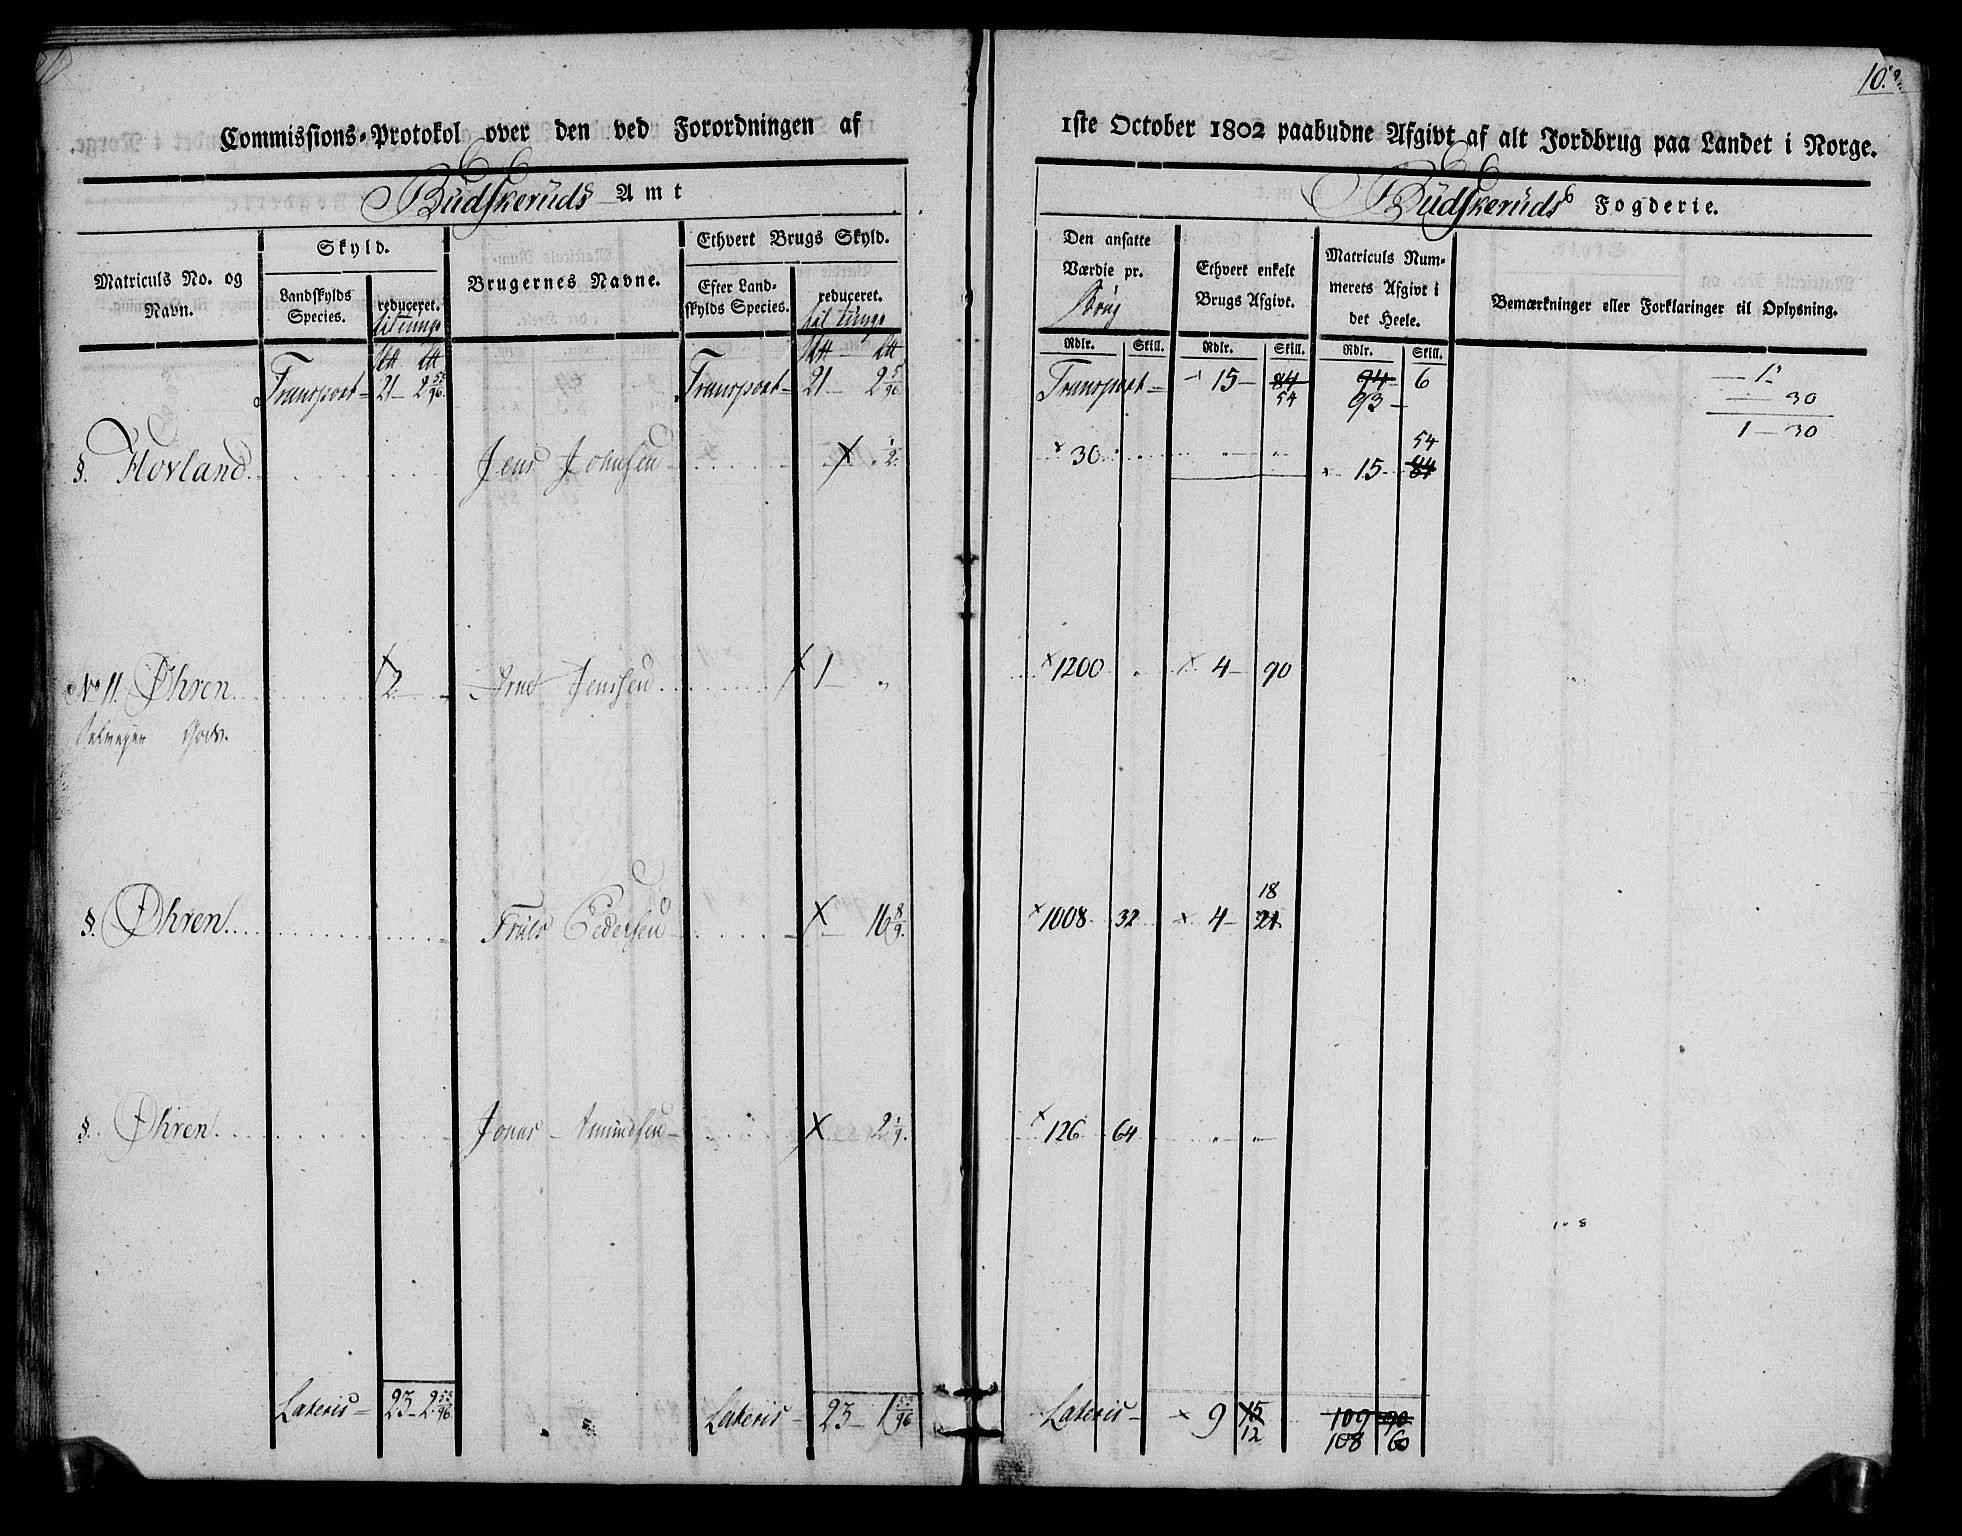 10.
Commissions-Protokol over den ved Forordningen af 1ste October 1802 paabudne Afgivt af alt Jordbrug paa Landet i Norge.
Budskeruds Amt
Budskeruds Fogderie.
Matriculs No. og Navn.
Skyld.
Landskylds Species.
reduceret. til Tunge
Brugernes Navne.
Ethvert Brugs Skyld.
Efter Landskylds Species.
reduceret. til Tunge
Den ansatte Værdie pr. Brug
Ethvert enkelt Brugs Afgivt.
Matriculs Nummerets Afgivt i det Heele.
Bemærkninger eller Forklaringer til Oplysning.
Rdlr. Skill. Rdlr. Skill. Rdlr. Skill.
Transport 21 2 53/96 Transport 21 2 5/96 Transport 15 84 94 6
54 93
1
30
1 30
§. Hovland Jens Johnsen 1/2 30 15 84
54
No 11. Øhren 2 Arne Jensen 1 1200 4 90
Selveyer Gods.
§. Øhren Truls Pedersen 16 8/9 1008 32 4 21
18
§. Øhren Jonas Amundsen 2 1/9 126 64
Lateris 23 2 53/96 Lateris 23 1 53/96 Lateris 9 15 109 90
12 108 60